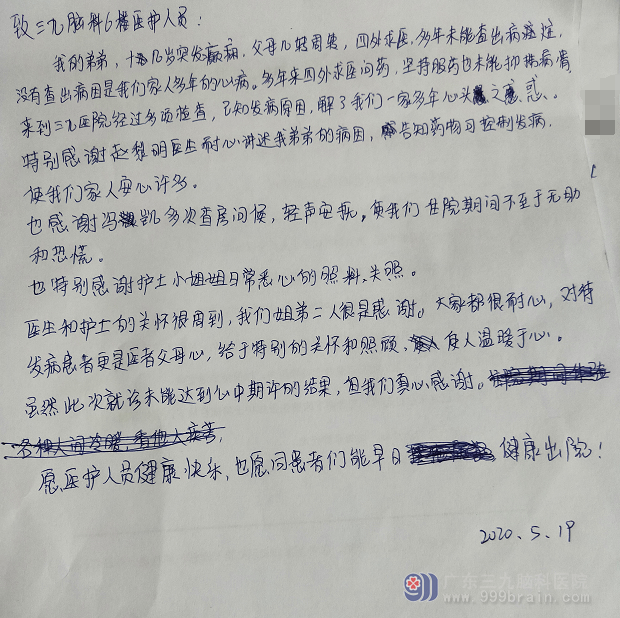 致三九脑科6楼医护人员：
我的弟弟，十几岁突发癫痫，父母几经周转，四外求医，多年未能查出病症症，
没有查出病因是我们家人多年的心病。多年来四外求医问药，坚持服药也未能抑
来到三九医院经过多项检查，了知发病原因，解了我们一家多年心头之惑。
特别感谢赵黎明医生耐心讲述我弟弟的病因，告知药物可控制发病，
使我们家人安心许多。
也感谢冯凯多次查房问候，轻声安抚，使我们住院期间不至于无助
和恐慌。
也特别感谢护士小姐姐日常悉心的照料、关照。
医生和护士的关怀很周到，我们姐弟二人很是感谢。大家都很耐心，对待
发病患者更是医者父母心，给于特别的关怀和照顾、使人温暖于心。
虽然此次就诊未能达到心中期许的结果，但我们真心感谢。
愿医护人员健康快乐，也愿同患者们能早日健康出院！
2020.5.19
广东三九脑科医院
www.999brain.com